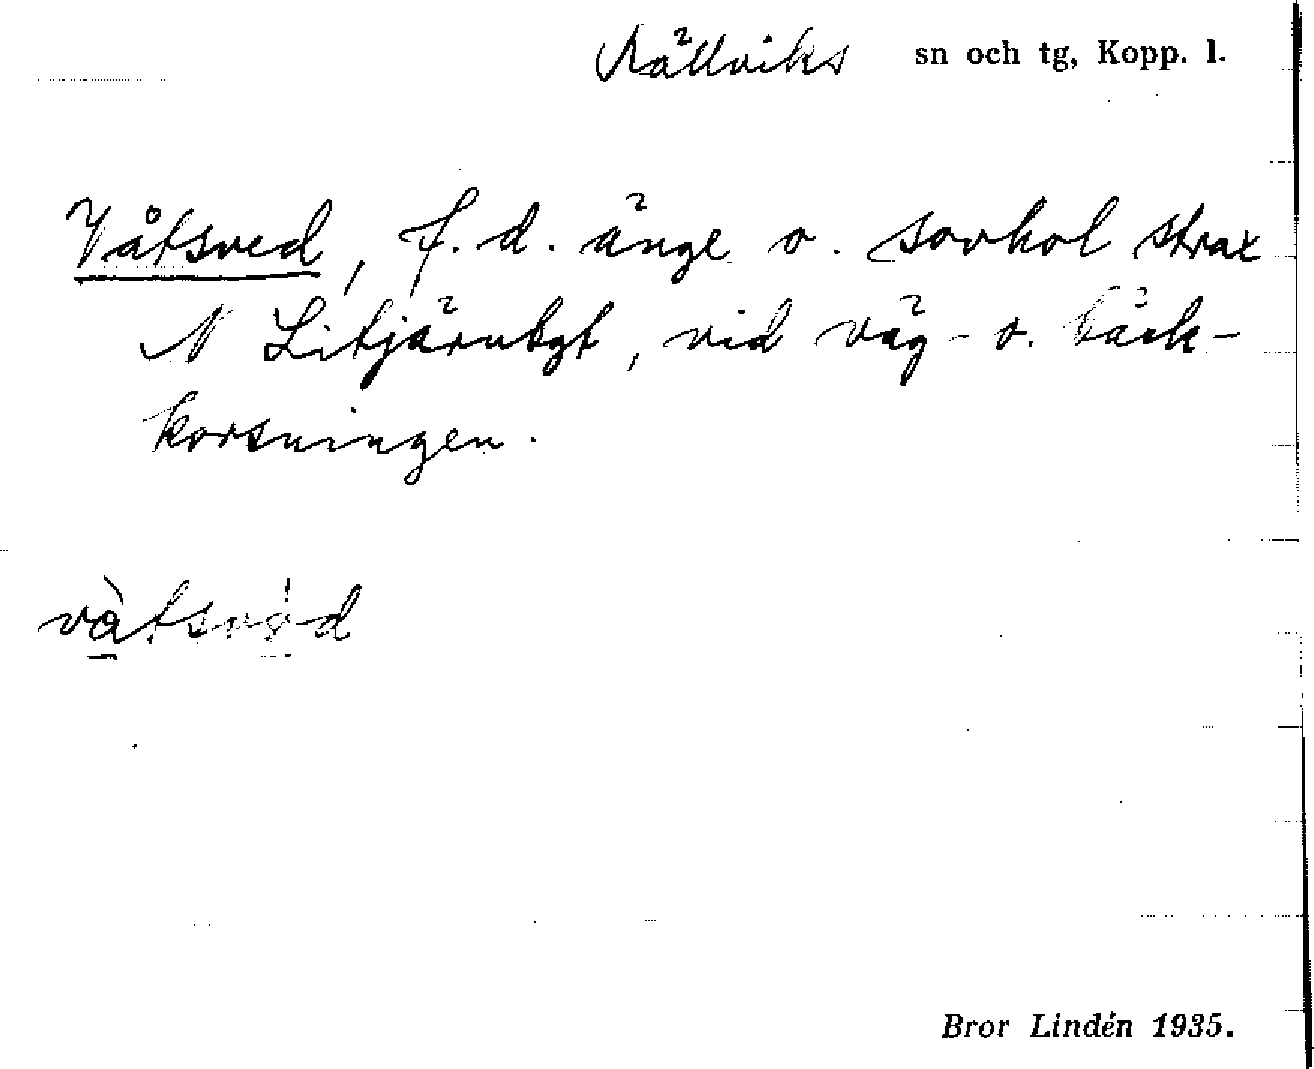 Rättviks sn och tg, Kopp. l.
Våtsved, f. d. änge o. sovhol strax
N Litjärnbgt, vid väg- o. bäck-
korsningen.
vàtsvød
Bror Lindén 1935.